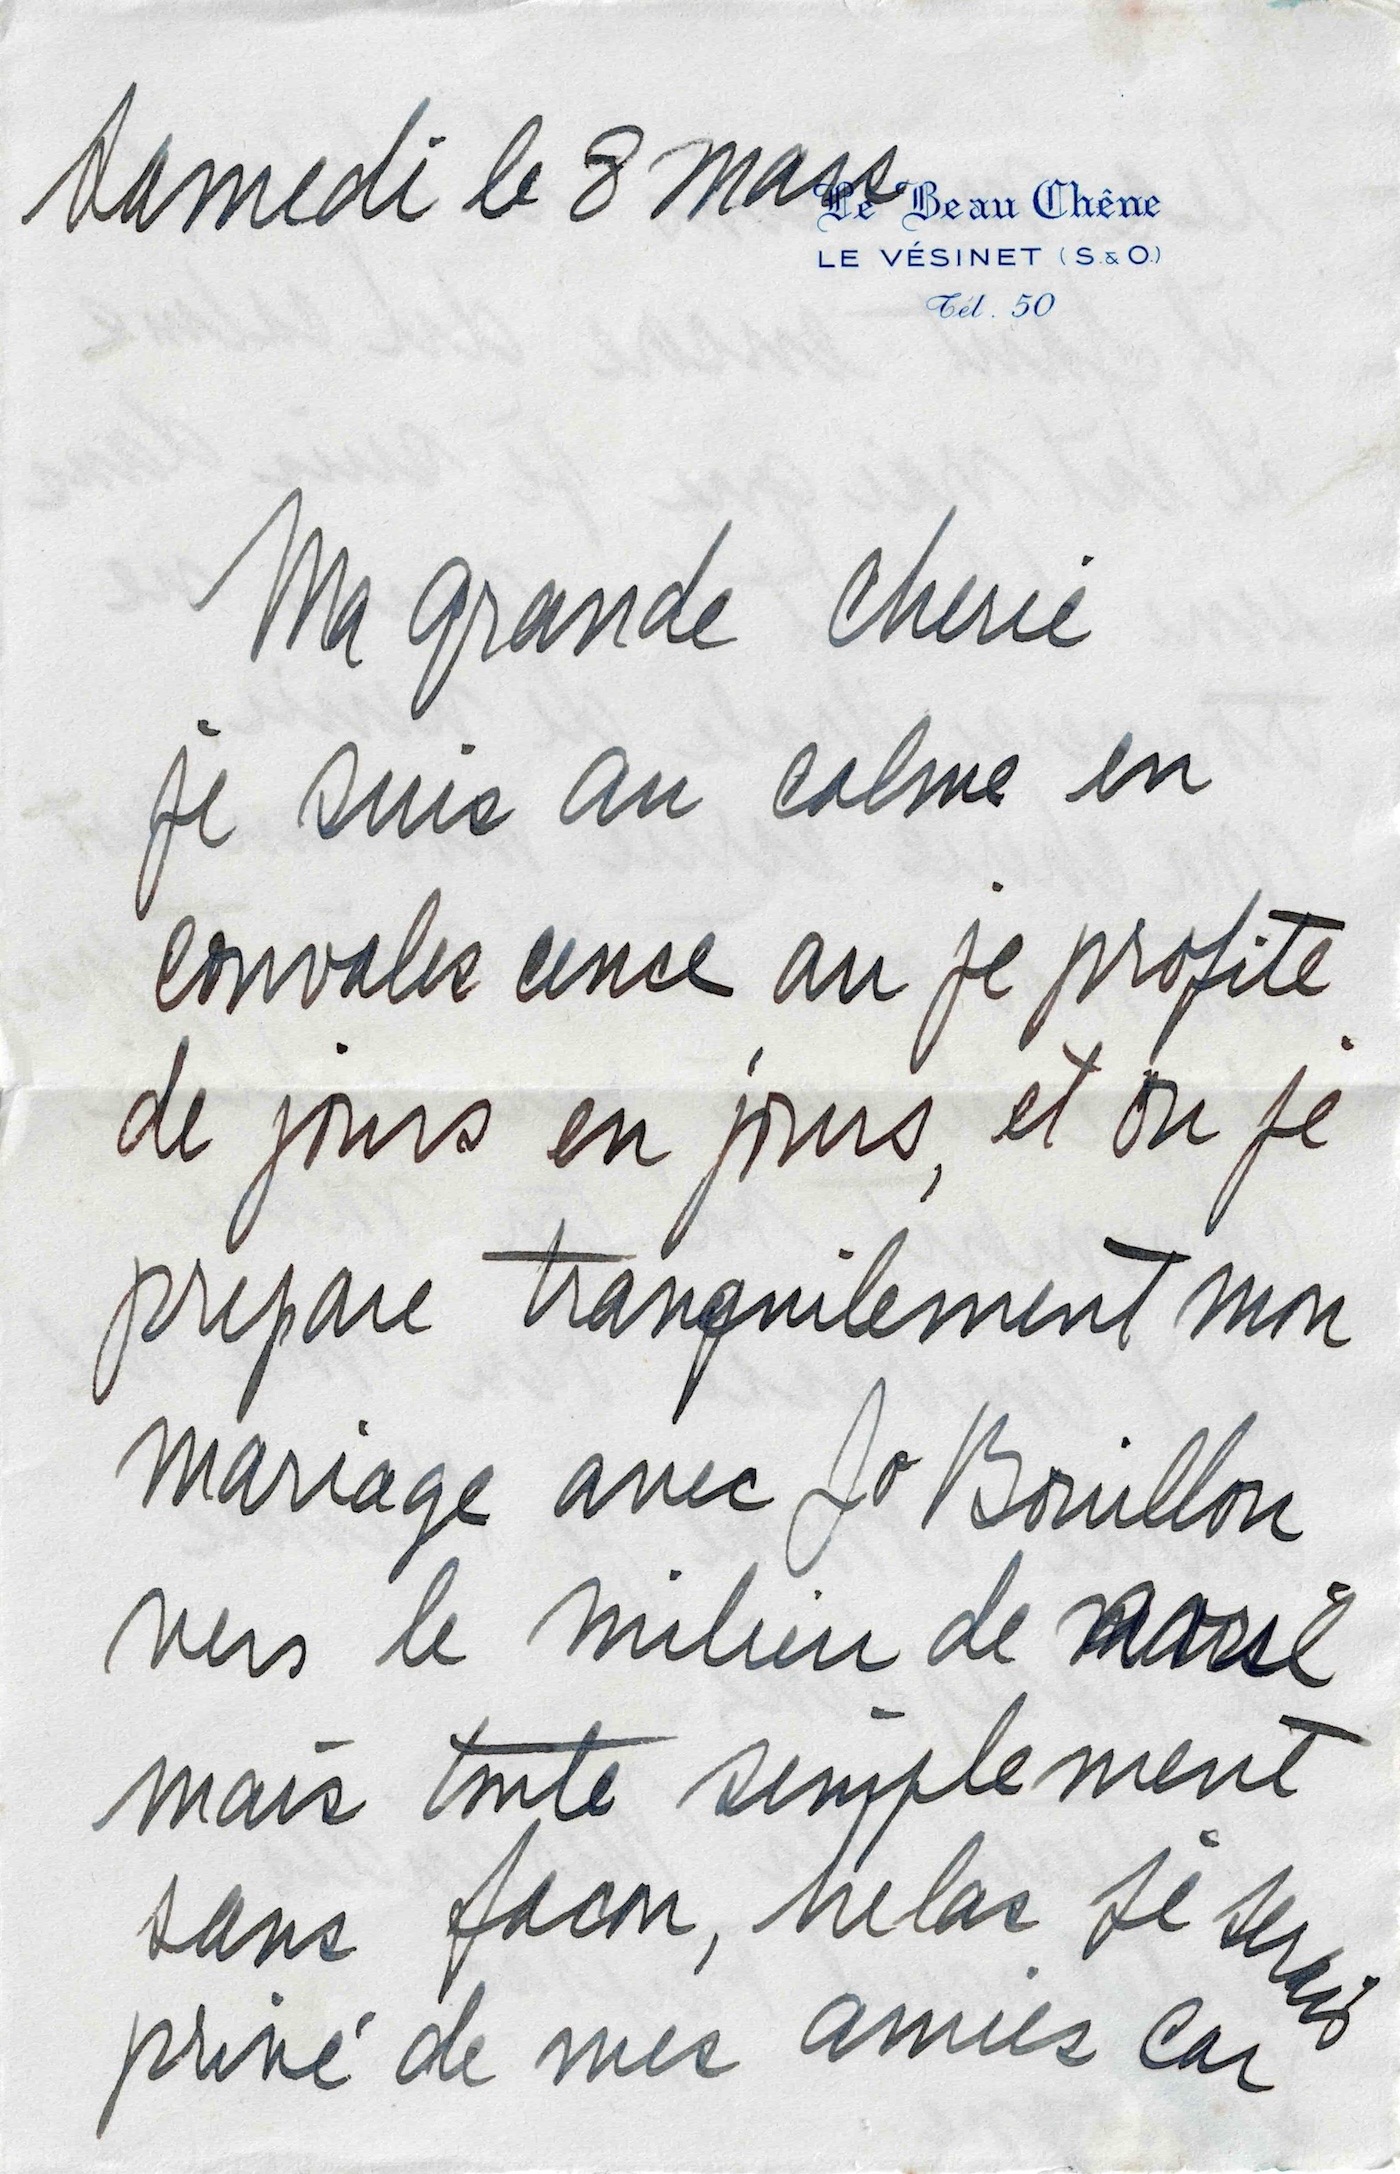 Samedi le 8 mars
Le Beau Chêne
LE VÉSINET (S.&O.)
Tél. 50
Ma grande cherie
je suis au calme en
convales cence ou je profite
de jours en jours, et ou je
prepare tranquilement mon
mariage avec Jo Bouillon
vers le milieu de
mais toute simplement
sans facon, helas je serais
privé de mes amies car